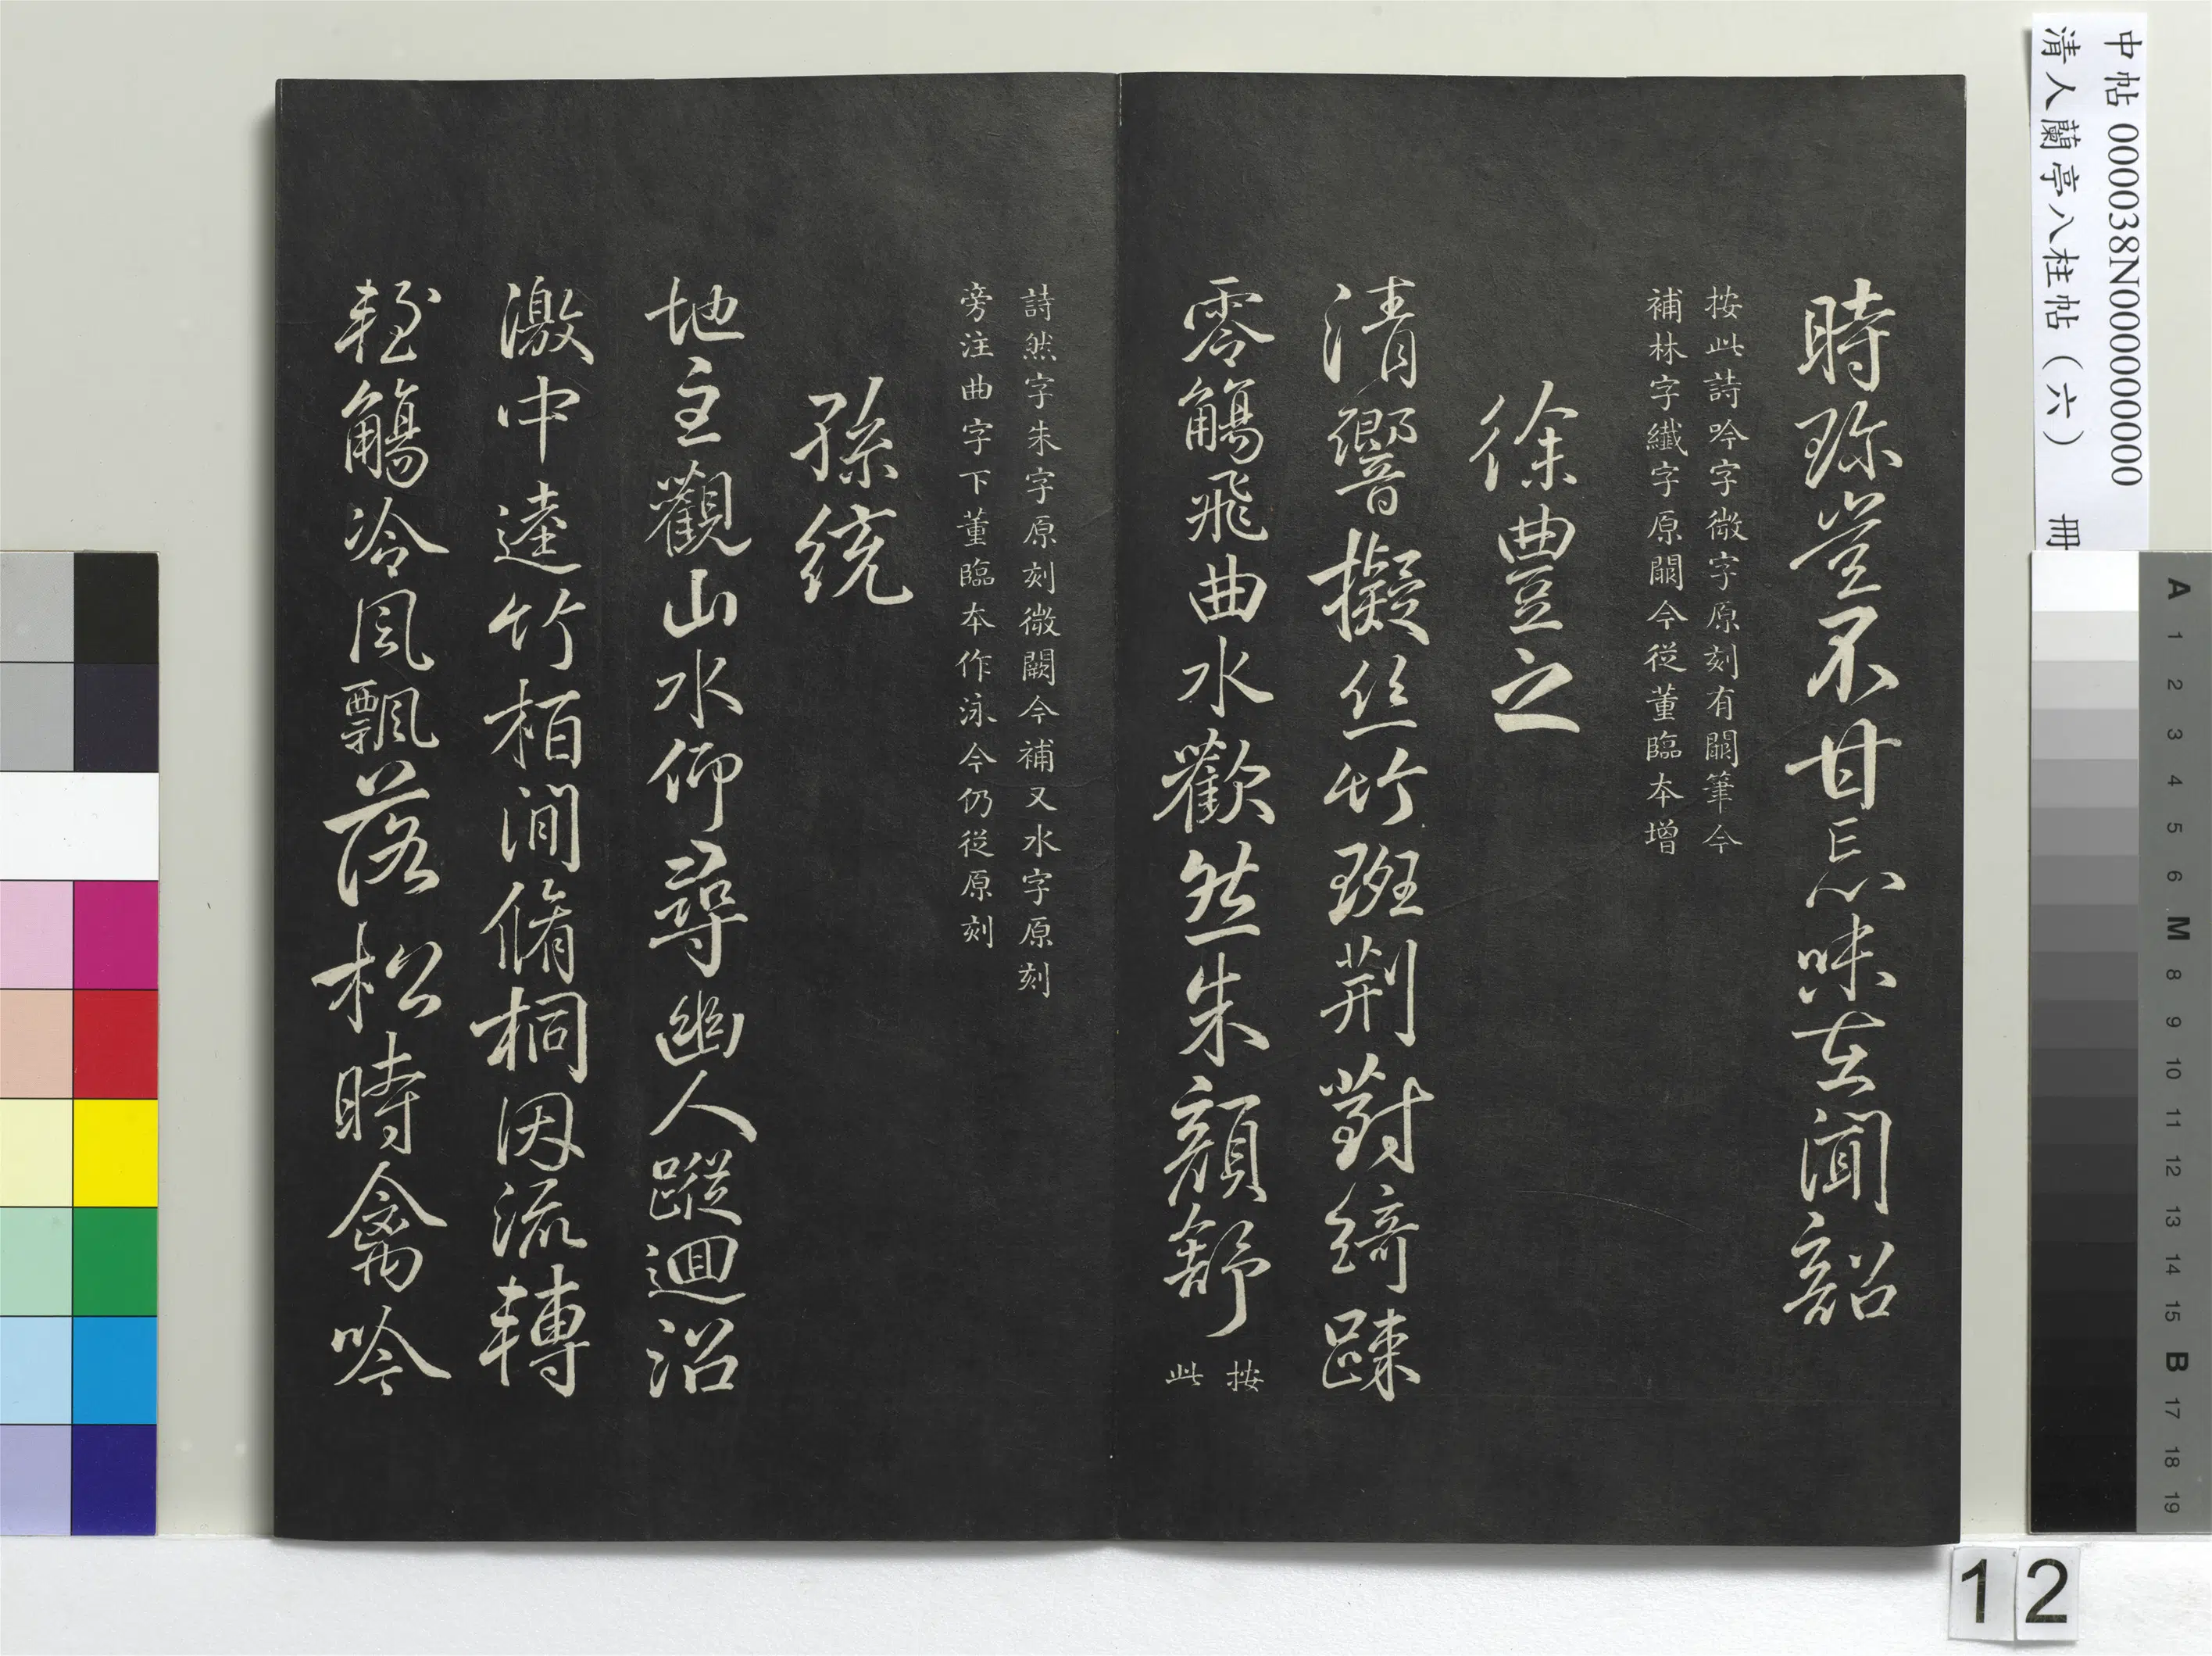 時珍豈不甘忘味在聞韶
按此詩吟字微字原刻有闕筆今
補林字纖字原闕今從董臨本增
徐豐之
清響擬丝竹班荆對綺踈
零觴飛曲水歡然朱顏舒
按
此
詩然字朱字原刻微闕今補又水字原刻
旁注曲字下董臨本作泳今仍從原刻
孫統
地主觀山水仰尋幽人蹤迴沼
激中逵竹栢澗脩桐因流轉
輕觴冷風飄落松時禽吟
中帖 000038N000000000
清人蘭亭八柱帖（六） 冊
A 1 2 3 4 5 6 M 8 9 10 11 12 13 14 15 B 17 18 19
12